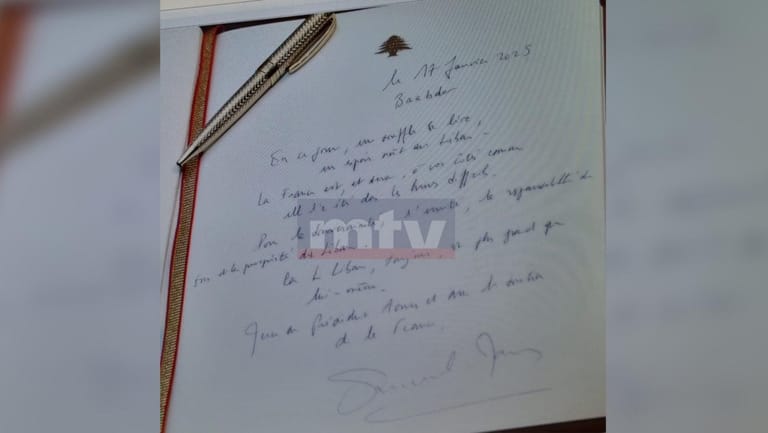 le 17 Janvier 2025
Baabda
En ce jour, un souffle se lève,
un espoir naît au Liban.
La France est, et sera, à vos côtés comme
elle l'a été dans les temps difficiles.
Pour la souveraineté, l'unité, la responsabilité de
tous et la prospérité du Liban.
mtv
Car le Liban, toujours, est plus grand que
lui-même.
au Président Aoun et
de la France.